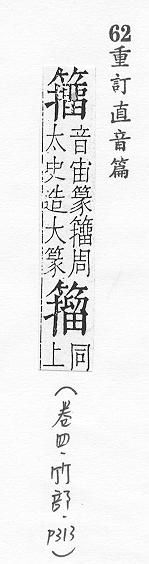 62重訂直音篇
籀
音宙篆籀周
太史造大篆
籕
同
上
(卷四·竹部·P313)